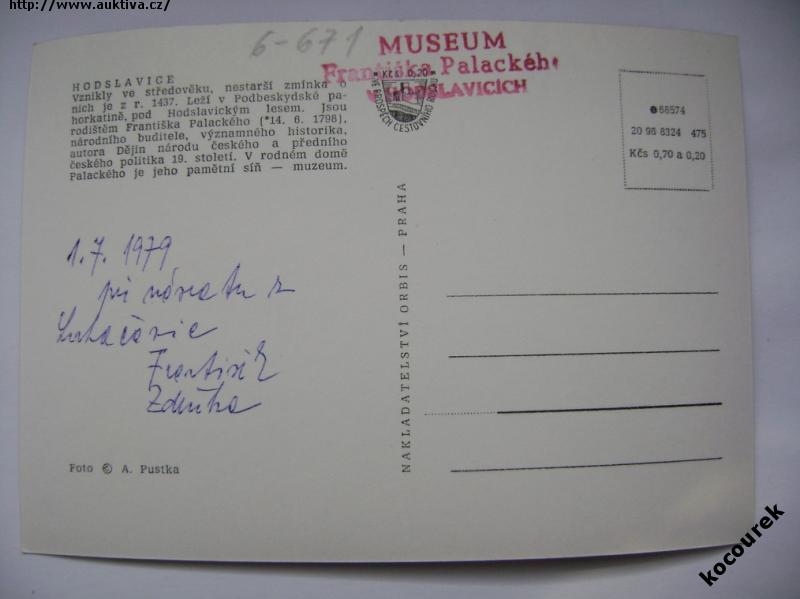 http://www.auktiva.cz/
6-671
MUSEUM
Františka Palackéh
HODSLAVICÍCH
Kčs 0,20
VE PROSPĚCH CESTOVNÍHO RUCHU
HODSLAVICE
Vznikly ve středověku, nestarší zmínka o
nich je z r. 1437. Leží v Podbeskydské pa-
horkatině, pod Hodslavickým lesem. Jsou
rodištěm Františka Palackého (*14. 6. 1798),
národního buditele, významného historika,
autora Dějin národu českého a předního
českého politika 19. století. V rodném domě
Palackého je jeho pamětní síň — muzeum.
68574
20 96 8324 475
Kčs 0,70 a 0,20
1.7. 1979
při návratu z
Luhačovic
František
Zdeňka
Foto © A. Pustka
NAKLADATELSTVÍ ORBIS — PRAHA
kocourek